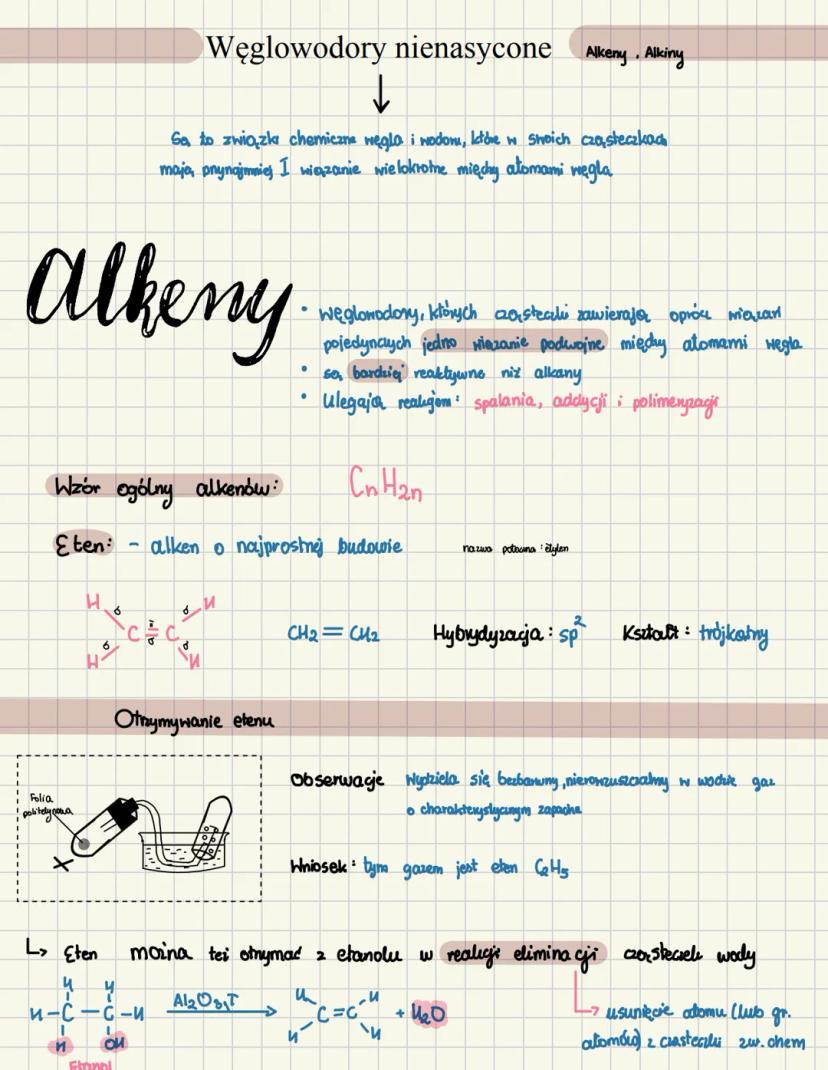 Węglowodory nienasycone Alkeny, Alkiny
Są to związki chemiczne węgla i wodoru, które w swoich cząsteczkach
mają przynajmniej 1 wiązanie wielokrotne między atomami węgla
Alkeny
• węglowodory, których cząsteczki zawierają oprócz wiązań
pojedynczych jedno wiązanie podwójne między atomami węgla
• są bardziej reaktywne niż alkany
• Ulegają reakcjom: spalania, addycji i polimeryzacji
Wzór ogólny alkenów: CnH2n
Eten: - alken o najprostszej budowie nazwa potoczna: etylen
H σ σ H
C = C
π
σ
H σ σ H
CH2 = CH2 Hybrydyzacja: sp2 Kształt: trójkątny
Otrzymywanie etenu
Folia
polietylenowa
Obserwacje Wydziela się bezbarwny, nierozpuszczalny w wodzie gaz
o charakterystycznym zapachu
Wniosek: tym gazem jest eten C2H5
↳ Eten można też otrzymać z etanolu w reakcji eliminacji cząsteczek wody
H H
H-C-C-H Al2O3,T
H OH
H H
C=C + H2O
H H
Etanol
usunięcie atomu (lub gr.
atomów) z cząsteczki zw. chem